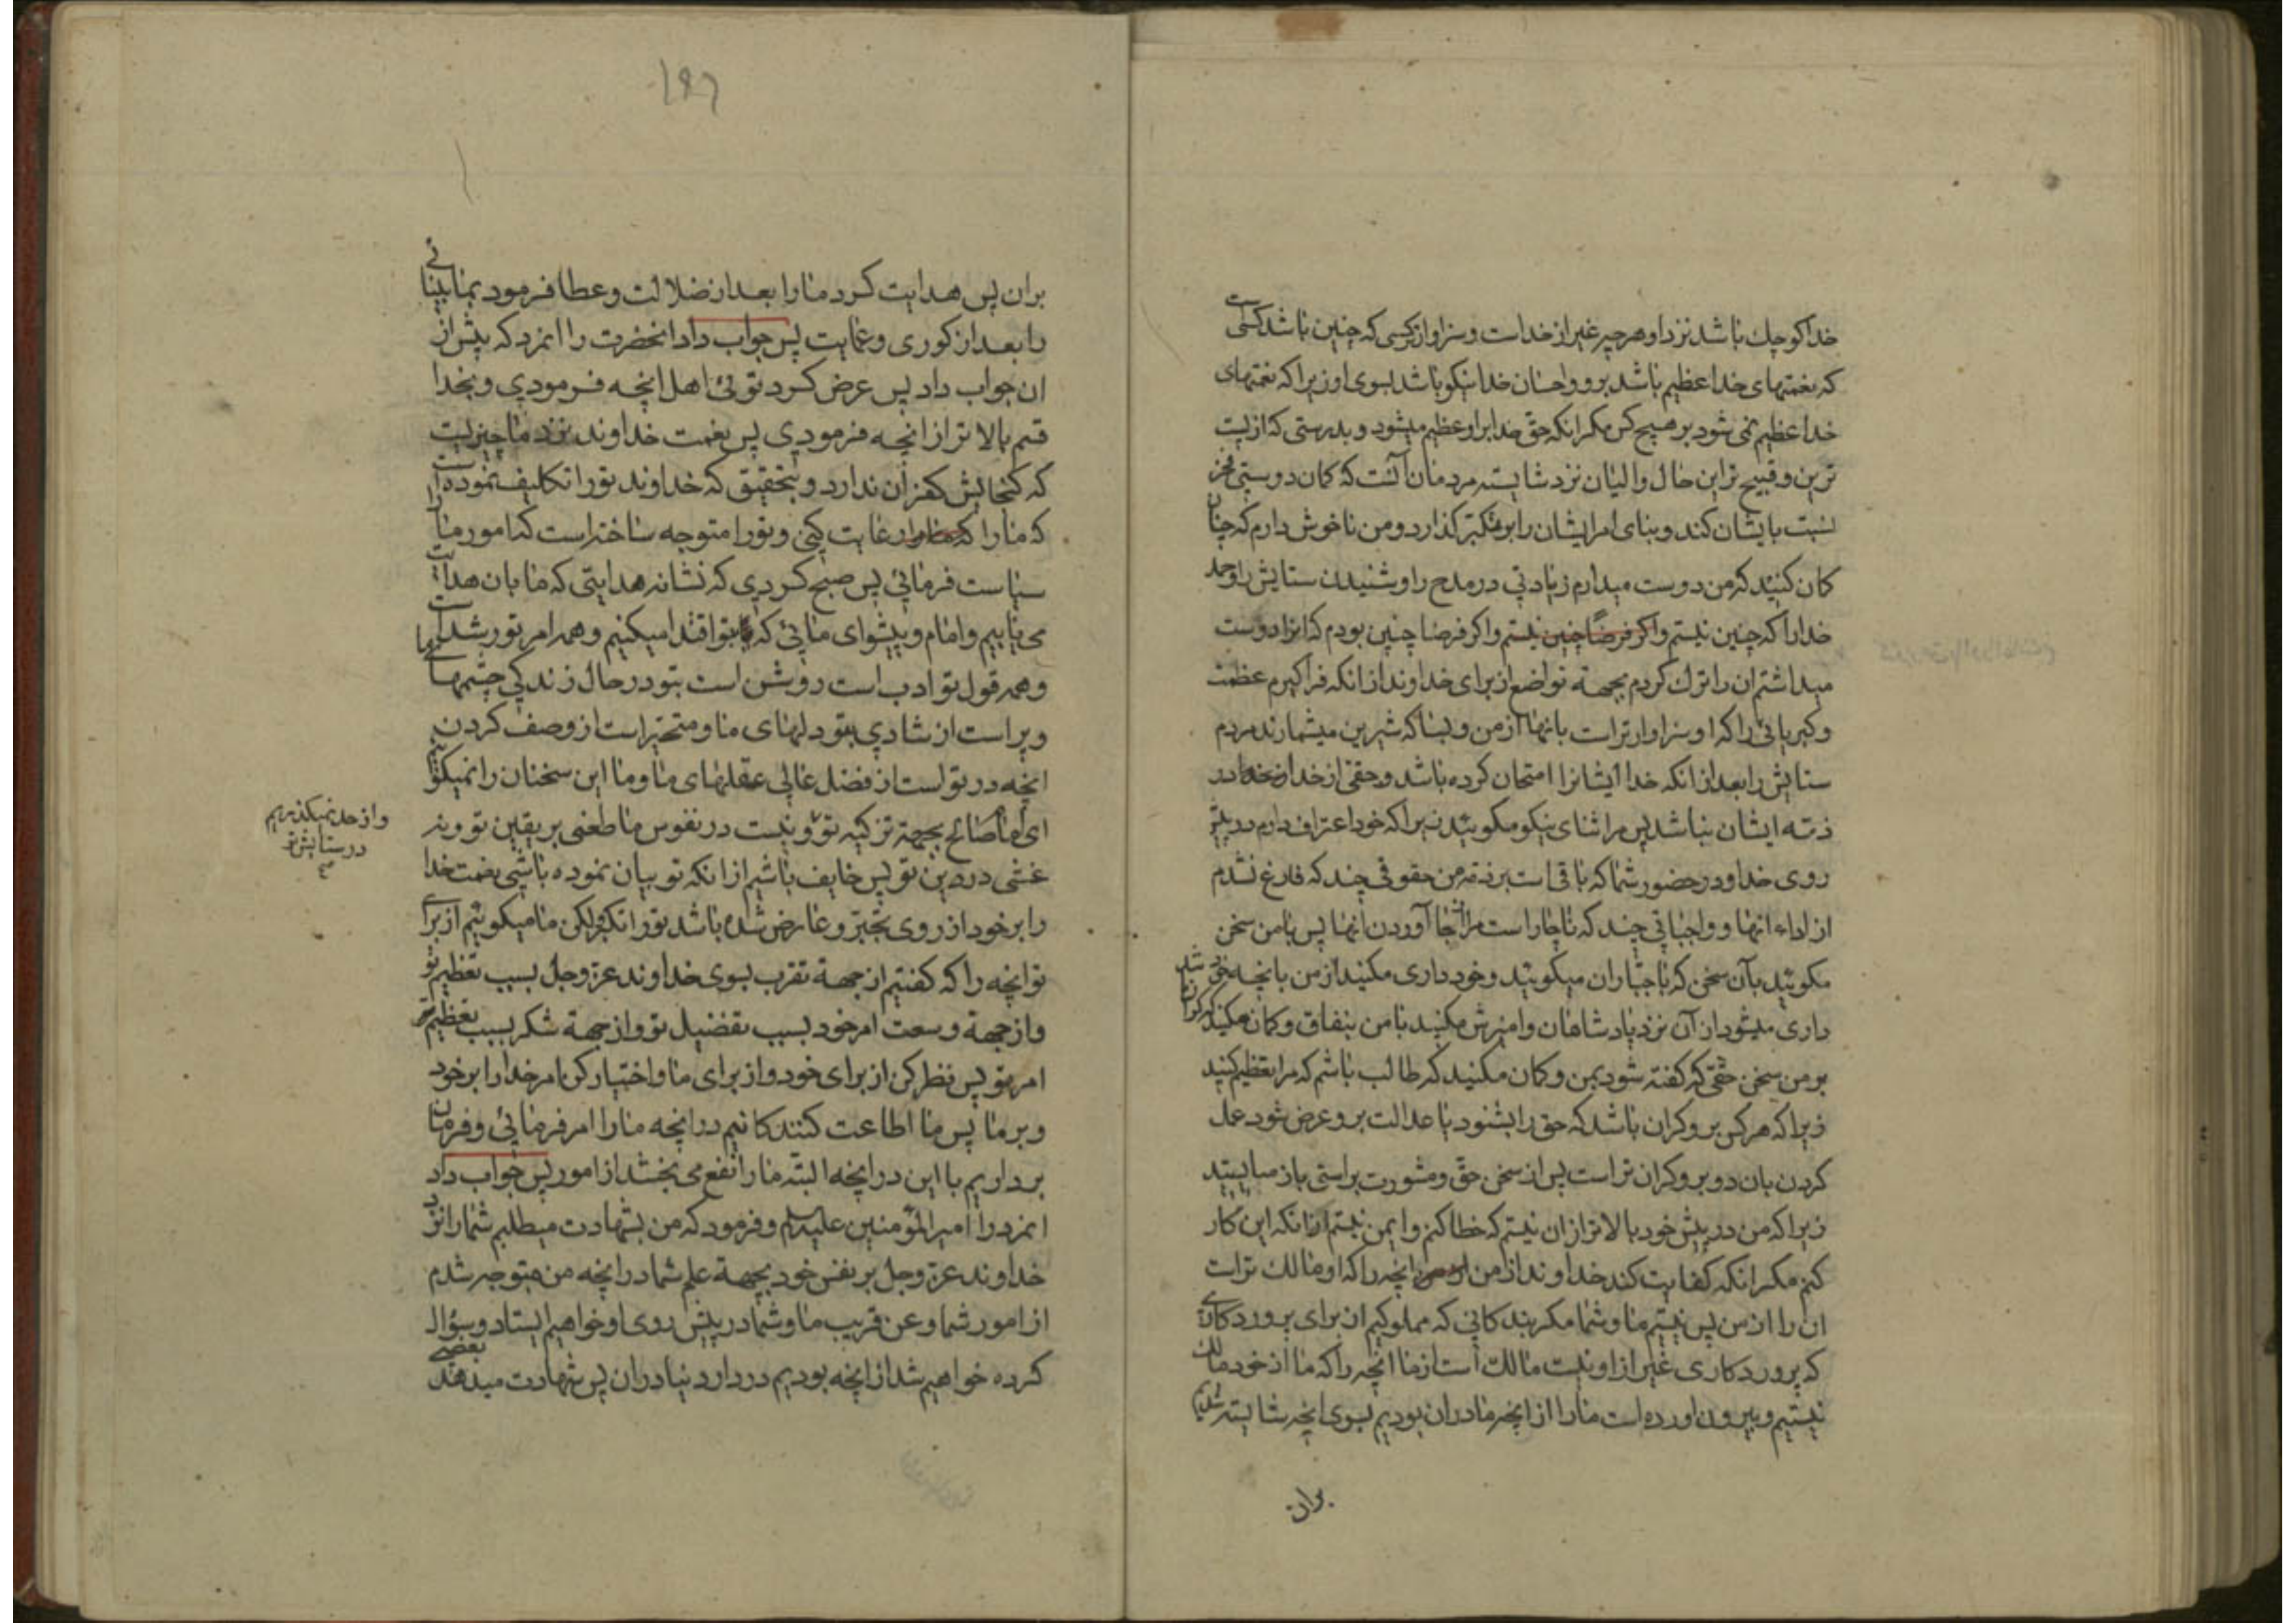 خدا کوچك باشد نزد او هر چیز غیر از خداست و سزاوارتر کسی که چنین باشد کسی است
که نعمتهای خدا عظیم باشد برو و احسان خدا نیکو باشد بسوی او زیرا که نعمتهای
خدا عظیم نمی شود بر هیچ کس مکر انکه حق خدا براو عظیم میشود و بدرستی که از پست
ترین و قبیح ترین حال والیان نزد شایسته مردمان آنست که کمان دوستی فخر
نسبت بایشان کند و بنای امر ایشان را بر تکبر کذارد و من ناخوش دارم که چنان
کمان کنید که من دوست میدارم زیادتی در مدح را و شنیدن ستایش را و حمد
خدا را که چنین نیستم و اکر فرضاً چنین نیستم و اکر فرضا چنین بودم که انرا دوست
میداشتم ان را ترك کردم بجهة تواضع از برای خداوند از انکه فرا کیرم عظمت
و کبریائی را که او سزاوارتر است بانها از من و بسا که شیرین میشمارند مردم
ستایش را بعد از انکه خدا ایشانرا امتحان کرده باشد و حقی از خدا در
ذمّه ایشان نباشد پس مرا ثنای نیکو مکوئید زیرا که خود اعتراف دارم در پیش
روی خدا و در حضور شما که باقی است بر ذمّه من حقوقی چند که فارغ نشدم
از اداء انها و واجباتی چند که ناچار است مرا از بجا آوردن انها پس با من سخن
مکوئید بآن سخن که با جبّاران میکوئید و خود داری مکنید از من بانچه خود
داری میشود از آن نزد پادشاهان و امیزش مکنید با من بنفاق و کمان مکنید که کران شد
بر من سخن حقّی که کفته شود بمن و کمان مکنید که طالب باشم که مرا تعظیم کنید
زیرا که هر کس برو کران باشد که حق را بشنود یا عدالت برو عرض شود عمل
کردن بان دو برو کران تر است پس از سخن حق و مشورت براستی باز مایستید
زیرا که من در پیش خود بالاتر از ان نیستم که خطا کنم و ایمن نیستم از انکه این کار
کنم مکر انکه کفایت کند خداوند از من انچه را که او مالك تر است
ان را از من پس نیستیم ما و شما مکر بندکانی که مملوکیم از برای پروردکاری
که پروردکاری غیر از او نیست مالك است از ما انچه را که ما از خود مالك
نیستیم و بیرون اورده است ما را از انچه ما دران بودیم بسوی انچه شایسته شدیم
بران
۱۹۶
بران پس هدایت کرد ما را بعد از ضلالت و عطا فرمود بما بینائی
را بعد از کوری و عمایت پس جواب داد انحضرت را انمرد که پیش از
ان جواب داد پس عرض کرد توئی اهل انچه فرمودی و بخدا
قسم بالاتر از انچه فرمودی پس نعمت خداوند نزد ما چیزیست
که کنجایش کفران ندارد و بتحقیق که خداوند تو را تکلیف نموده است
که ما را رعایت کنی و تو را متوجه ساخته است که امور ما را
سیاست فرمائی پس صبح کردی که نشانه هدایتی که ما بان هدایت
می یابیم و امام و پیشوای مائی که بتو اقتدا میکنیم و همه امر تو رشد است
و همه قول تو ادب است روشن است بتو در حال زندکی چشمهای ما
و پر است از شادی بتو دلهای ما و متحیر است از وصف کردن
انچه در تو است از فضل عالی عقلهای ما و ما این سخنان را نمیکوئیم
ای امام صالح بجهة تزکیه تو و نیست در نفوس ما طعنی بر یقین تو و نه
غشی در دین تو پس خایف باشیم از انکه تو بیان نموده باشی نعمت خدا
را بر خود از روی تجبّر و عارض شده باشد تو را تکبر و لکن ما میکوئیم از برای
تو انچه را که کفتیم از جهة تقرب بسوی خداوند عزّ وجل بسبب تعظیم تو
و از جهة وسعت امر خود بسبب تفضیل تو و از جهة شکر بسبب تعظیم
امر تو پس نظر کن از برای خود و از برای ما و اختیار کن امر خدا را بر خود
و بر ما پس ما اطاعت کنندکانیم در انچه ما را امر فرمائی و فرمان
برداریم با این در انچه البتّه ما را نفع می بخشد از امور پس جواب داد
انمرد را امیر المؤمنین علیه السلم و فرمود که من بشهادت میطلبم شما را نزد
خداوند عزّ وجل بر نفس خود بجهة علم شما در انچه من متوجه شدم
از امور شما و عن قریب ما و شما در پیش روی او خواهیم ایستاد و سؤال
کرده خواهیم شد از انچه بودیم در دار دنیا دران پس شهادت میدهند بعضی
و از حد نمیکذریم
در ستایش تو